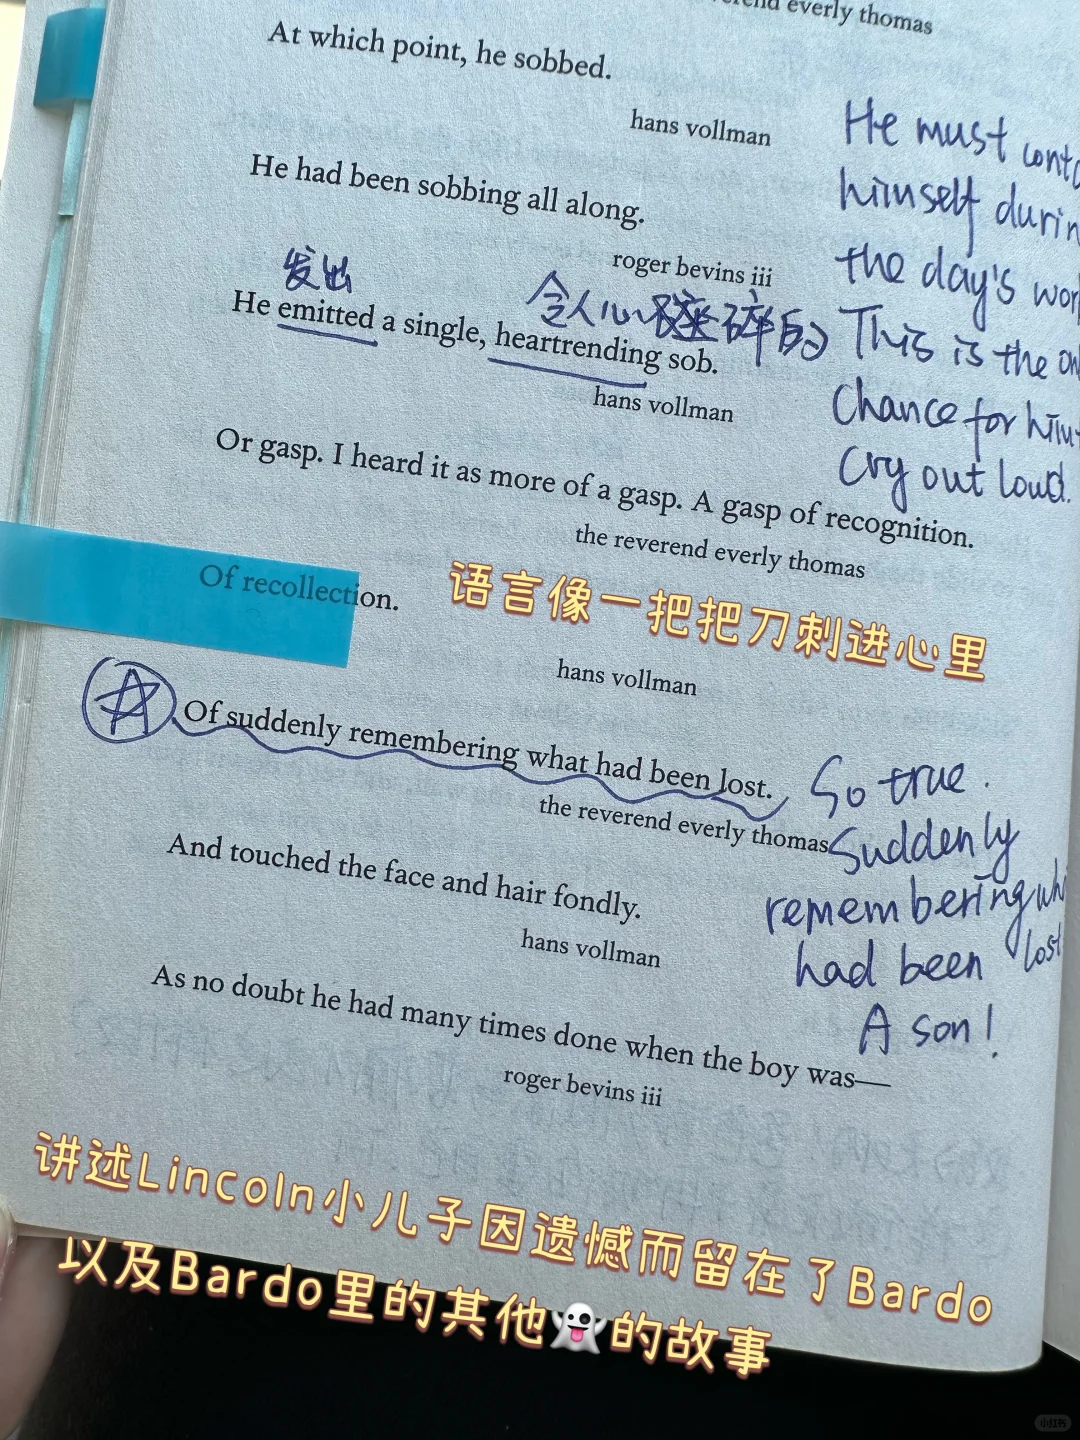 everly thomas
At which point, he sobbed.
hans vollman
He had been sobbing all along.
roger bevins iii
发出
令人心碎的
He emitted a single, heartrending sob.
hans vollman
Or gasp. I heard it as more of a gasp. A gasp of recognition.
the reverend everly thomas
Of recollection.
语言像一把把刀刺进心里
hans vollman
Of suddenly remembering what had been lost.
the reverend everly thomas
And touched the face and hair fondly.
hans vollman
As no doubt he had many times done when the boy was—
roger bevins iii
He must
himself
the day's
This is the
Chance for
Cry out loud.
So true.
Suddenly
remembering
had been lost
A son!
讲述Lincoln小儿子因遗憾而留在了Bardo
以及Bardo里的其他👻的故事
小红书